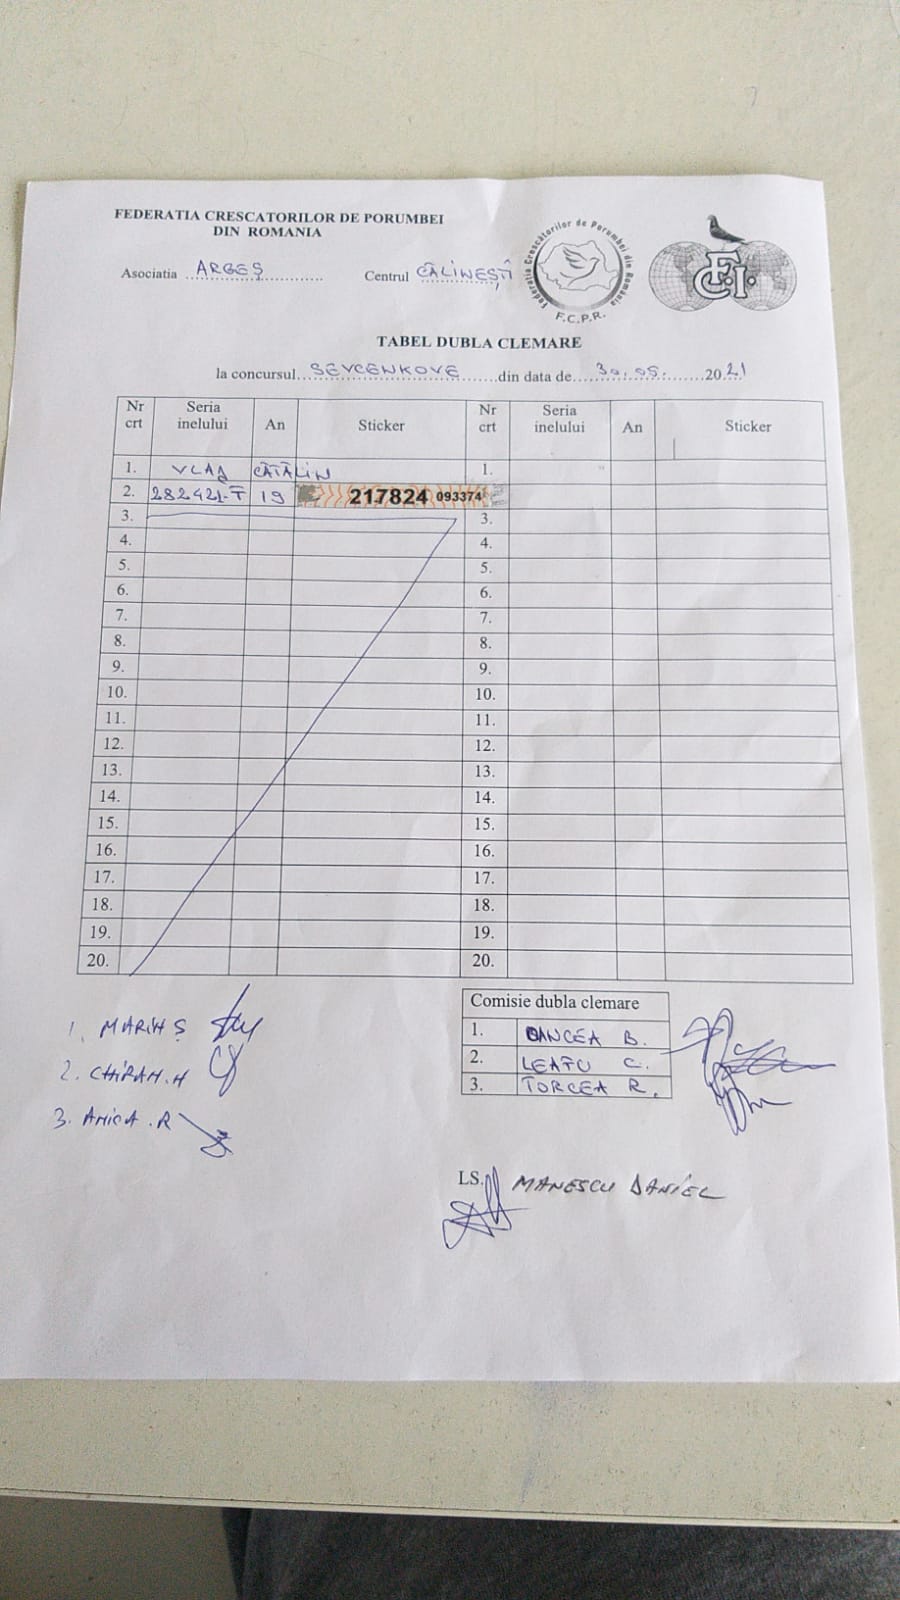 FEDERATIA CRESCATORILOR DE PORUMBEI
DIN ROMANIA
Asociatia ARGEȘ Centrul CĂLINEȘTI
Federatia Crescătorilor de Porumbei din România
F.C.P.R.
F.C.I.
TABEL DUBLA CLEMARE
la concursul SEVCENKOVE din data de 30.05. 2021
Nr crt Seria inelului An Sticker Nr crt Seria inelului An Sticker
1. VLAD CĂTĂLIN 1.
2. 282421-T 19 217824 093374
3. 3.
4. 4.
5. 5.
6. 6.
7. 7.
8. 8.
9. 9.
10. 10.
11. 11.
12. 12.
13. 13.
14. 14.
15. 15.
16. 16.
17. 17.
18. 18.
19. 19.
20. 20.
1. MARIN Ș
2. 
3. .R
Comisie dubla clemare
1. OANCEA B.
2. LEAFU C.
3. TORCEA R.
LS. MANESCU DANIEL